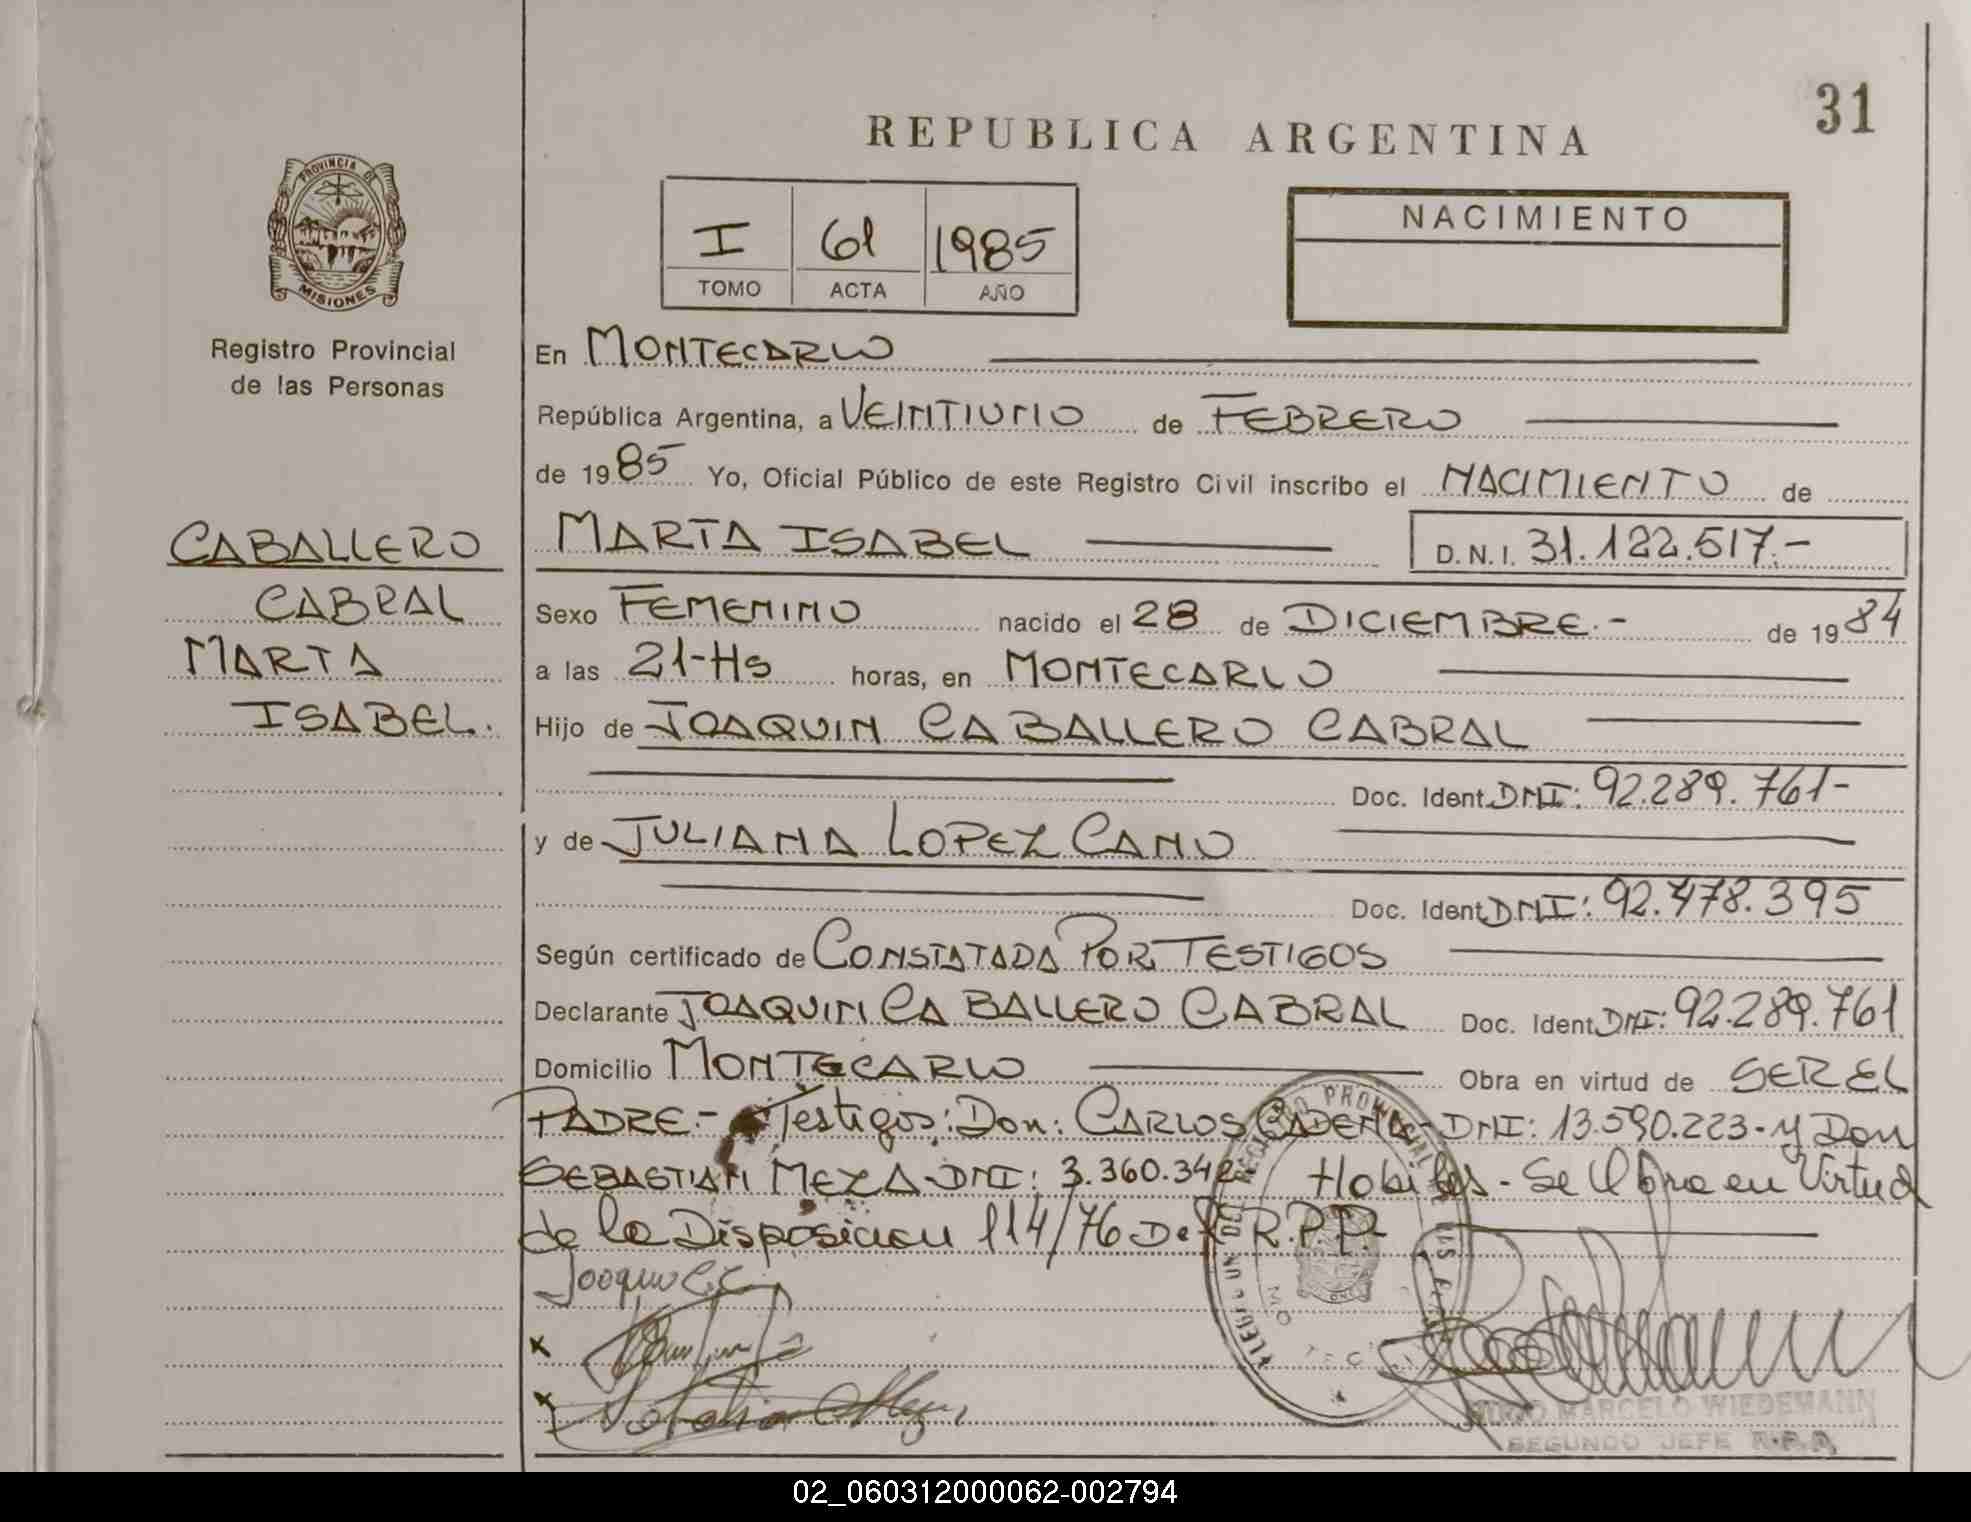 31
REPUBLICA ARGENTINA
PROVINCIA DE
MISIONES
Registro Provincial
de las Personas
I 61 1985
TOMO ACTA AÑO
NACIMIENTO
En MONTECARLO
República Argentina, a VEINTIUNO de FEBRERO
de 1985 Yo, Oficial Público de este Registro Civil inscribo el NACIMIENTO de
MARTA ISABEL D.N.I. 31.122.517.-
CABALLERO
CABRAL
MARTA
ISABEL.
Sexo FEMENINO nacido el 28 de DICIEMBRE.- de 1984
a las 21-Hs horas, en MONTECARLO
Hijo de JOAQUIN CABALLERO CABRAL
Doc. Ident. DNI: 92.289.761-
y de JULIANA LOPEZ CANO
Doc. Ident. DNI: 92.478.395
Según certificado de CONSTATADA POR TESTIGOS
Declarante JOAQUIN CABALLERO CABRAL Doc. Ident. DNI: 92.289.761
Domicilio MONTECARLO Obra en virtud de SER EL
PADRE.- Testigos: Don: CARLOS CADENA-DNI: 13.590.223-y Don
SEBASTIAN MEZA-DNI: 3.360.342 Habiles-Se Obra en Virtud
de la Disposicion 114/76 Del R.P.P.
Joaquin C.C.
MARCELO WIEDEMANN
SEGUNDO JEFE R.P.P.
02_060312000062-002794